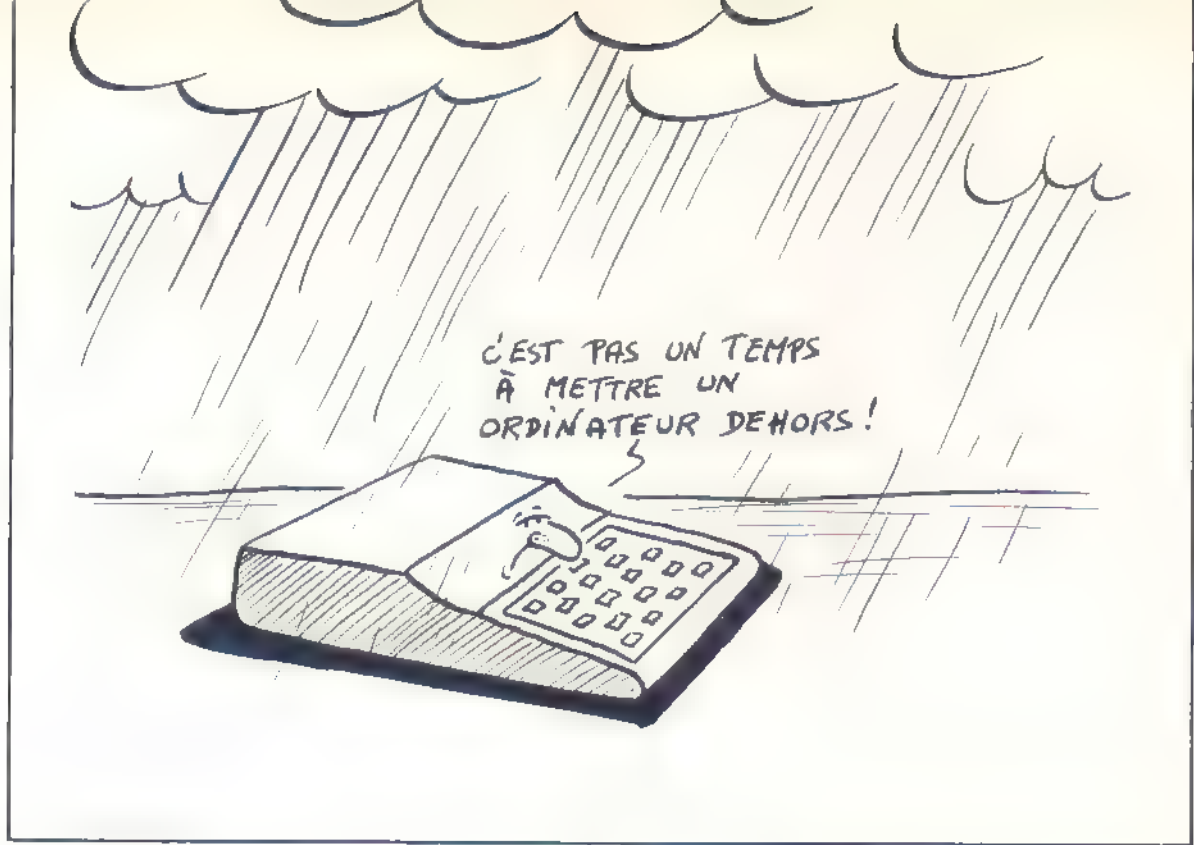 C'EST PAS UN TEMPS
À METTRE UN
ORDINATEUR DEHORS !